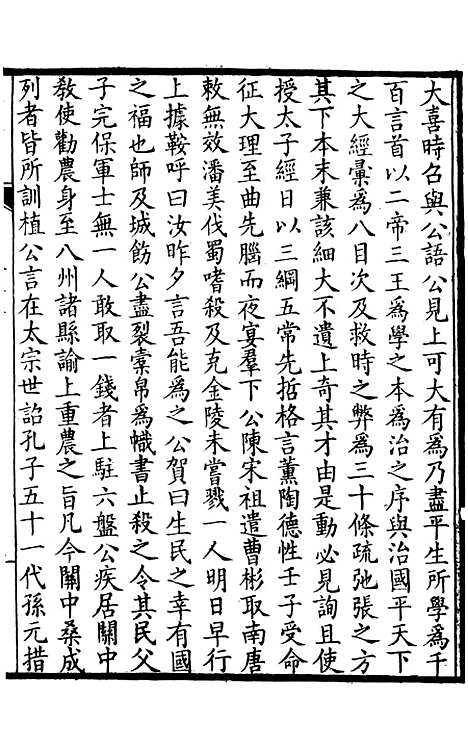 大喜時召與公語公見上可大有為乃盡平生所學為千
百言首以二帝三王為學之本為治之序與治國平天下
之大經彙為八目次及救時之弊為三十條疏弛張之方
其下本末兼該細大不遺上奇其才由是動必見詢且使
授太子經日以三綱五常先哲格言薰陶德性壬子受命
征大理至曲先腦而夜宴羣下公陳宋祖遣曹彬取南唐
敕無效潘美伐蜀嗜殺及克金陵未嘗戮一人明日早行
上據鞍呼曰汝昨夕言吾能為之公賀曰生民之幸有國
之福也師及城飭公盡裂橐帛為幟書止殺之令其民父
子完保軍士無一人敢取一錢者上駐六盤公疾居關中
敎使勸農身至八州諸縣諭上重農之旨凡今關中桑成
列者皆所訓植公言在太宗世詔孔子五十一代孫元措